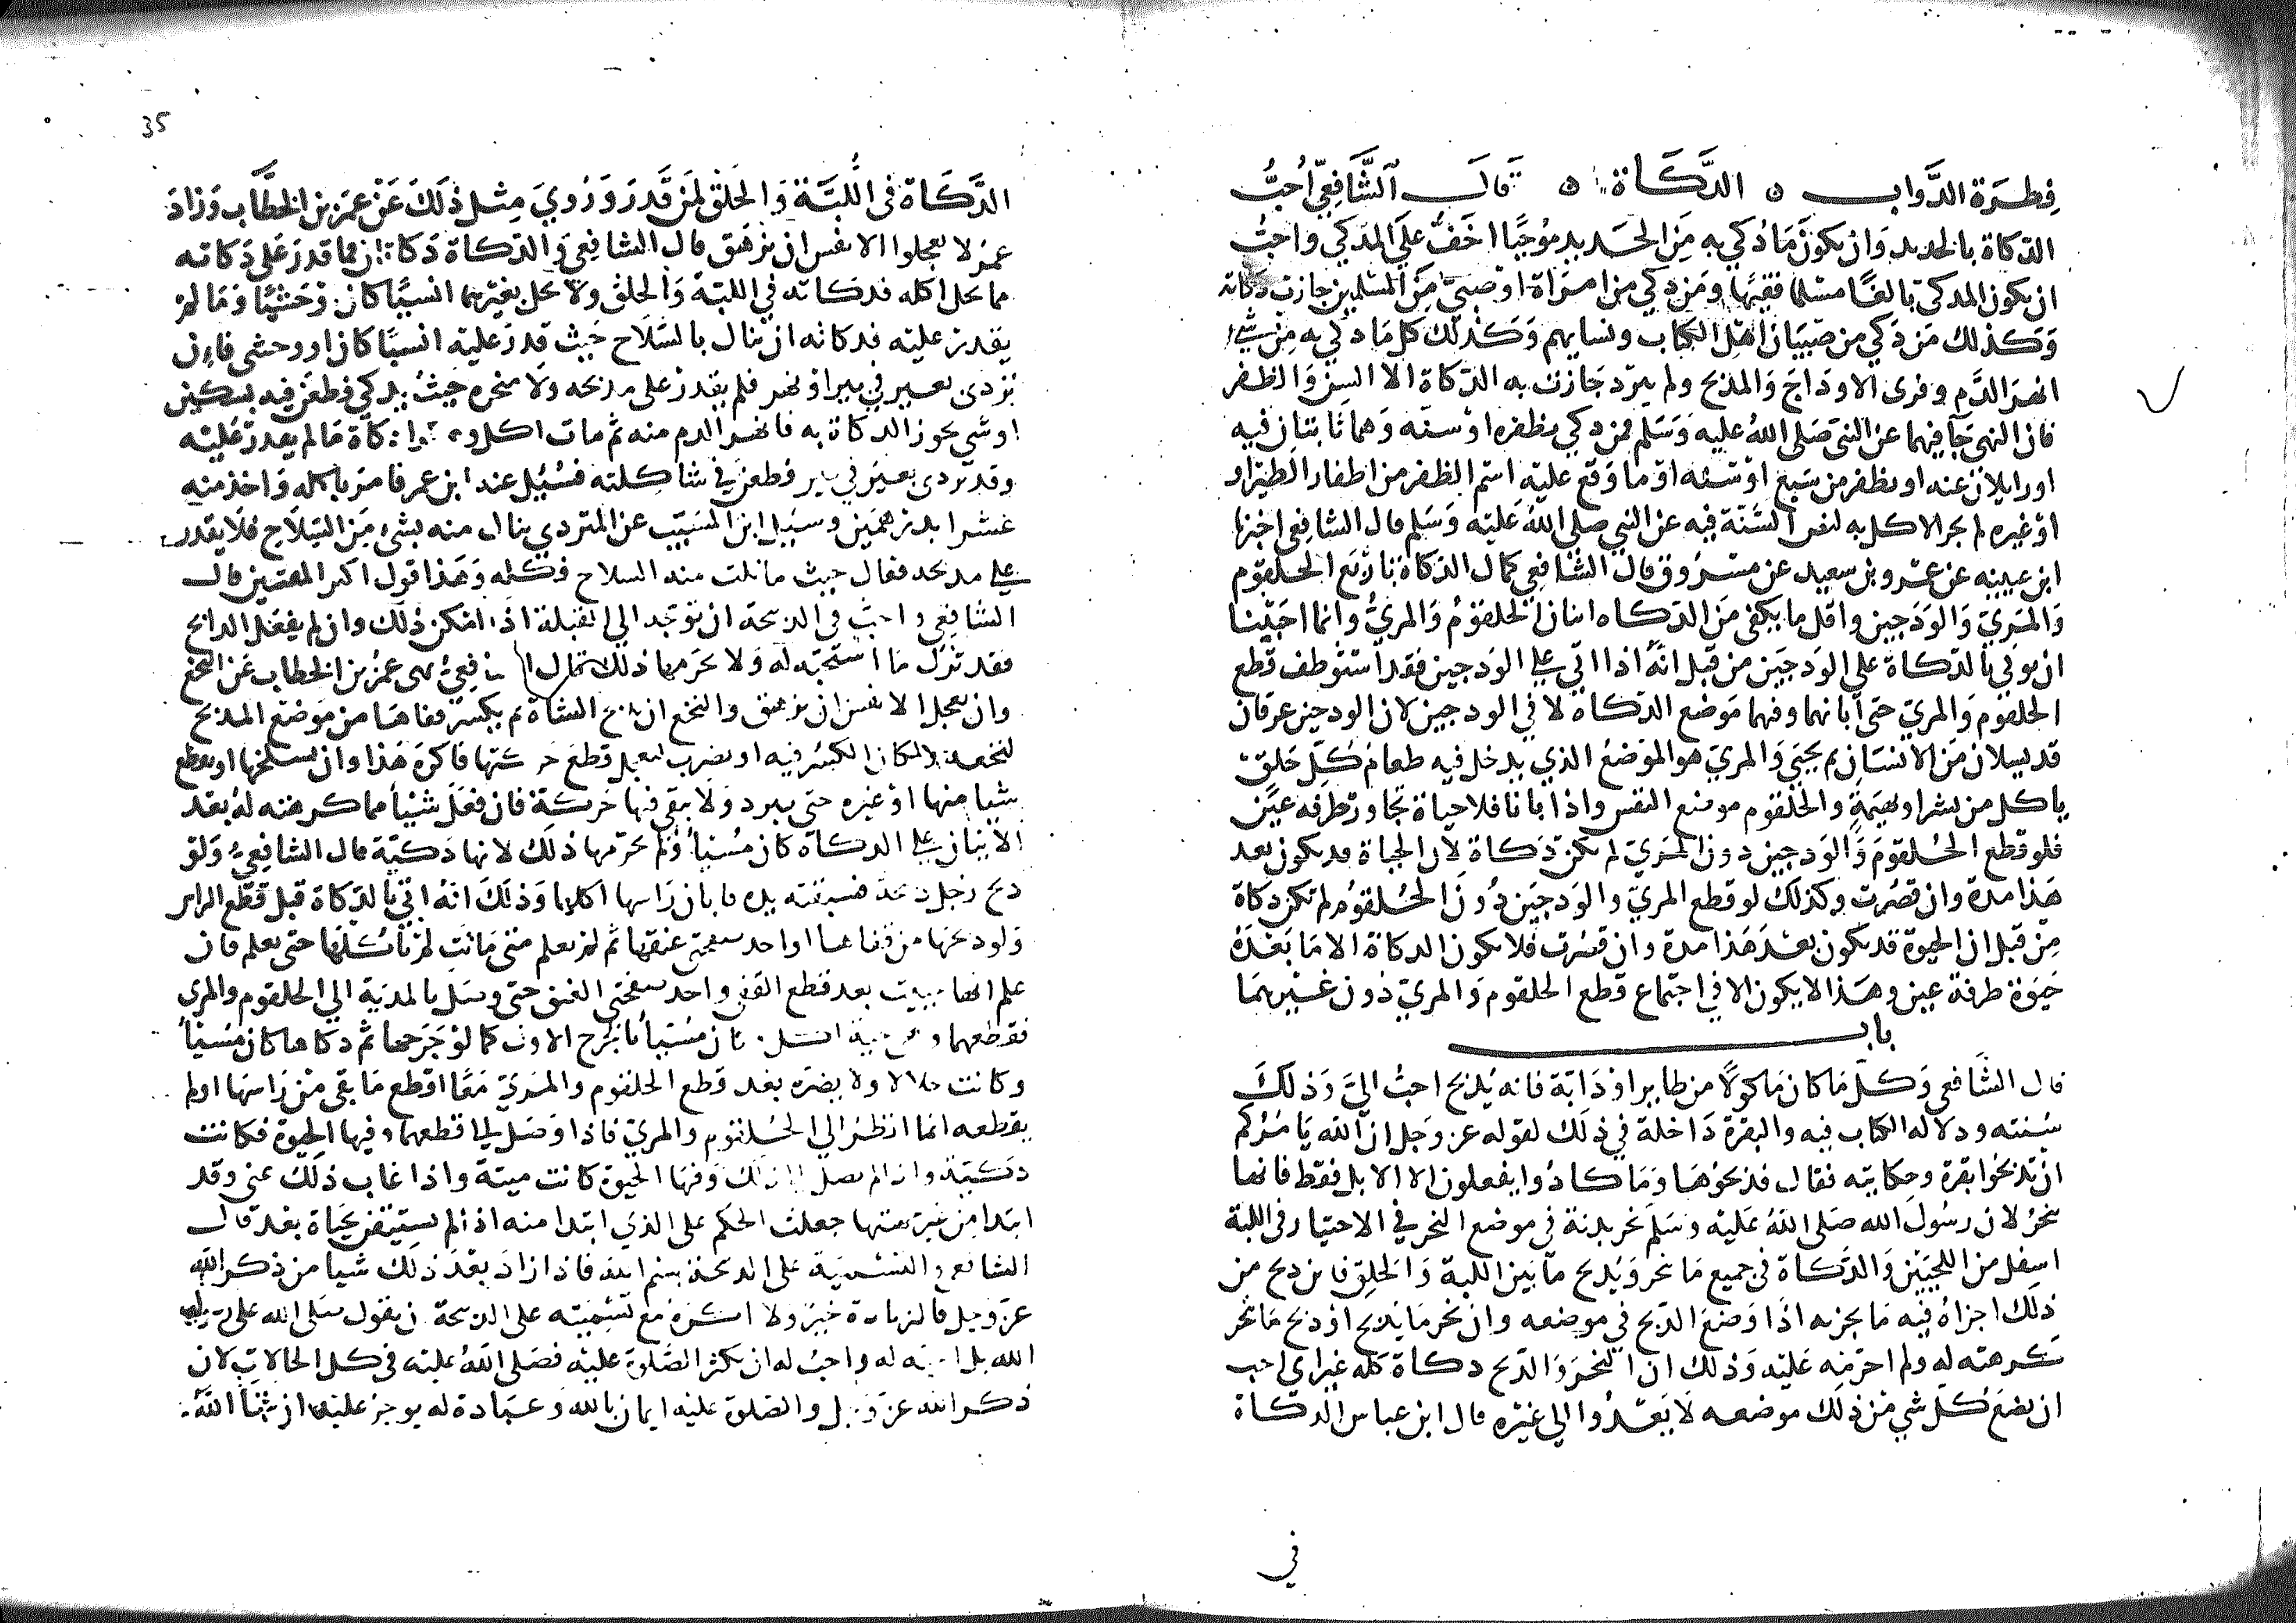 فِطرَة الدَّواب ه الدَّكَاة ه قال الشَّافِعيّ اُحبُّ
الذكاة بالحديد وَان يكونَ مَا ذُكي به مِنَ الحَديد مُوجيًا اخَفَّ علَى المذكي واحبُّ
ان يكون المذكى بالغًا مسْلما فقيهًا ومَن ذكي من امرَاة اوْ صبيّ مِنَ المسْلمين جازت ذكاته
وَكذلك مَن ذكي من صبيَان اهْل الكتاب ونسايهم وَكذلك كل مَا ذكي به مِن شيء
انهرَ الدَّم وفرى الاودَاجَ وَالمذبح ولم يَرد جَازت به الذكاة الا السِن وَالظفر
فان النهى جَا فيهما عن النبى صَلى اللهُ عليه وَسَلم فمن ذكي بظفره اوْ سنّه وَهما ثابتان فيه
اوزايلان عنه او بظفر من سَبع اوْ سنّه اوْ ما وَقع عليْه اسْم الظفر من اظفار الطيْر او
اوْ غيره لم يجز الاكل به لنص السُّنّة فيه عن النبي صلى اللهُ عَليْه وَسَلم قال الشافِعى اخبرنا
ابن عيينه عن عمْرو بن سعيد عن مسْرُوق قال الشَّافِعي كمال الذكاة بارْبَع الحُلقوْم
وَالمَريّ وَالوَدَجين واقل ما يكفى مَن الدكاه اثنان الحلقوْمُ وَالمريُّ وانما احَبَبْنا
ان يوتي بالذكاة على الوَدجَين من قبَل انّهُ اذا اتي على الوَدجين فقد اسْتوْظف قطع
الحلقوم وَالمريّ حتى ابانهما وفهما مَوْضع الذكاه لا في الودجين لان الودجين عرقان
قد يسلان مَن الانسَان ثم يحيَى وَالمريّ هو الموْضعُ الذي يدخل فيه طعامُ كُلِّ خَلقٍ
ياكل من بشر او بهيمةٍ والحُلقوم موضع النفس واذا بانا فلا حياة تجاوز طرفه عيْن
فلو قطع الحُلقومَ وَالوَدجين دون المَريّ لم تكن ذَكاة لان الحياة قد تكون بعد
هَذا مدة وان قصُرت وكذلك لو قطع المريّ والوَدجَين دُونَ الحُلقوْم لم تكن ذكاة
مِن قبَل ان الحيوة قد تكون بعْدَ هَذا مدة وان قصُرت فلا تكون الدكاة الا مَا بَعْدَهُ
حَيوة طرفة عين وهَذا لا يكون الا في اجتماع قطع الحلقوم وَالمريّ دُون غيْرهمَا
باب
قال الشافعى وَكلّ مَا كان مَاكولًا من طاير او دَابّة فانه يُذبح احبُّ اليَّ وَذلكَ
سُنته ودلاله الكتاب فيه والبقرة دَاخلة في ذلك لقوله عز وجَل ان الله يَامُرُكم
ان تذبحُوا بقرة وحكايته فقال فذبحوْهَا وَمَا كادُوا يفعلون الا الابل فقط فانها
تنحرُ لان رسُول الله صَلى اللهُ عَليْه وَسَلم نحر بدنة في موضع النحر في الاختيار في اللبة
اسِفل من اللحيَيْن وَالذكاة في جميع مَا ينحر وَيُذبح ما بَين اللبة وَالحَلق فاين ذبح من
ذلك اجزاهُ فيه مَا يجزيه اذَا وَضعَ الذّبح في موضعه وان نحر مَا يُذبح اوْ ذبح مَا ينحر
كرهته له ولم احرّمه عَليْه وَذلك ان النحرَ وَالذّبح دكاة كله غيْر اني احب
ان يضعَ كُلّ شي مْن ذلك موضعه لَا يَعْدُوا الي غيْره قال ابن عباس الدكاة
في
35
الدَّكَاة في اللّبَّة وَالحَلْق لمَن قَدرَ وَرُويَ مِثْل ذلَك عَنْ عمَرَ بن الخطَّاب وَزادَ
عمرُ لا تعجلوا الانفس ان تزهق قال الشافِعيَ وَالذكاة ذكاتان فما قدرَ عَلى ذكاته
مما يحل اكله فذكاته في اللبّة وَالحلق ولا يحل بغيْرهما انسيًّا كان اوْ وَحْشيًّا وَمَا لمْ
يقدر عليْه فدكاته ان ينال بالسّلَاح حَيث قدرَ عليْه انسيًّا كان او وحشى فان
تردى بعير في بير اوْ نهر فلم يقدر على مذبحه ولا منحره حيثُ يذكي فطعَن فيه بسكين
اوشى يجوز الدكاة به فانهر الدم منه ثم مات اكل وهذا ذكاة مَا لم يقدر عَليْه
وقد تردى بعيَر في بير فطعِن في شاكلته فسُئِل عنه ابن عمر فامرَ باكله وَاخذ منه
عشرا بدرهمَين وسيَل ابن المسَيّب عن المتردي ينال منه بشيء مَن السّلاح فلَا يقدر
على مذبحه فقال حيث ما نلت منه السلاح فكله وَهَذا قول اكثر المفتين قال
الشافِعي واحبُّ في الذبيحة ان توجّه الى القبلة اذَا امْكن ذلك وان لم يفعَل الذابح
فقد ترك مَا اسْتحبّه له وَلا يحَرمها ذلك قال الشافِعيُ نهى عُمرُ بن الخطاب عَن النخع
وان تعجل الانفس ان تزهق والنخع ان يذبح الشاة ثم يكسَر قفاهَا من مَوضع المذبح
لنخعه ولمكان الكسْر فيه او يضرب ليعجل قطعَ حركتها فاكرَه هَذا وان يسلخها او يقطع
شيا منها اوْ غيْره حتى تبرد وَلا يبقى فيها حَركة فان فعَلَ شيْئًا مما كرهته لهُ بعْد
الاتيان على الدكاة كان مُسْيئًا وَلم يحرّمها ذلك لانها ذكيّة قال الشافِعيُّ وَلوْ
ذبح رَجل ذبيحة فسبقته يده فابان رَاسها اكلها وَذلَك انهُ اتي بالذكاة قبل قطع الراس
وَلو ذبحَها من قفاها او احد صفحتي عنقها ثم لمْ يعلم متى مَاتت لمْ تاكلهَا حتى يعلم فان
علم انها حييت بعد قطع القفى واحد صفحتي العنق حتى وصَل بالمديَة الي الحلقوم والمري
فقطعهما وهي حية اكل، كان مُسْيئًا بالجرح الاول كما لوْ جَرَحها ثم دكاها كان مُسْيئًا
وكانت حلالا ولا يضرّه بعْد قطع الحلقوم والمَريّ مَعًا اقطع مَا بقى مْن رَاسهَا اولم
يقطعه انما انظرُ الى الحُلقوم والمريّ فاذا وَصَل الي قطعهما وفيها الحيوة فكانت
ذكيّة واذا لم يصل الى ذلك وَفيهَا الحيوة كانت ميتة واذا غابَ ذلكَ عنى وقد
ابتدا من غير جهتها جعلت الحكم على الذي ابتدا منه اذ لم يستيقن بحَياة بعْد قال
الشافعى والتسْميَة على الذبيحة بسْم الله فاذا زادَ بعْد ذلك شيا من ذكر الله
عزّ وجل فالزيادة خيرٌ ولا اكرَه مَع تسْميته على الذبيحة ان يقول صَلى الله على رسول
الله بل احبّه له واحبُ له ان يكثر الصَّلوة عليْه فصَلى اللهُ عليْه في كل الحالات لان
ذكر الله عزّ وَجل والصّلوة عليْه ايمان بالله وَعبَادة له يوجر عليْها ان شا اللّهُ